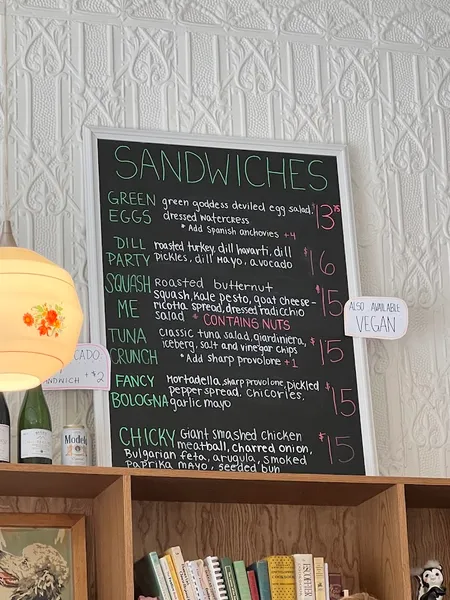 SANDWICHES
GREEN EGGS
green goddess deviled egg salad,
dressed watercress
* Add Spanish anchovies +4
$13.75
DILL PARTY
roasted turkey, dill havarti, dill
pickles, dill mayo, avocado
$16
SQUASH ME
roasted butternut
squash, kale pesto, goat cheese-
ricotta spread, dressed radicchio
salad * CONTAINS NUTS
$15
ALSO AVAILABLE
VEGAN
TUNA CRUNCH
classic tuna salad, giardiniera,
iceberg, salt and vinegar chips
*Add sharp provolone +1
$15
FANCY BOLOGNA
Mortadella, sharp provolone, pickled
pepper spread, chicories,
garlic mayo
$15
CHICKY
Giant smashed chicken
meatball, charred onion,
Bulgarian feta, arugula, smoked
paprika mayo, seeded bun
$15
SANDWICH +$2
Modelo